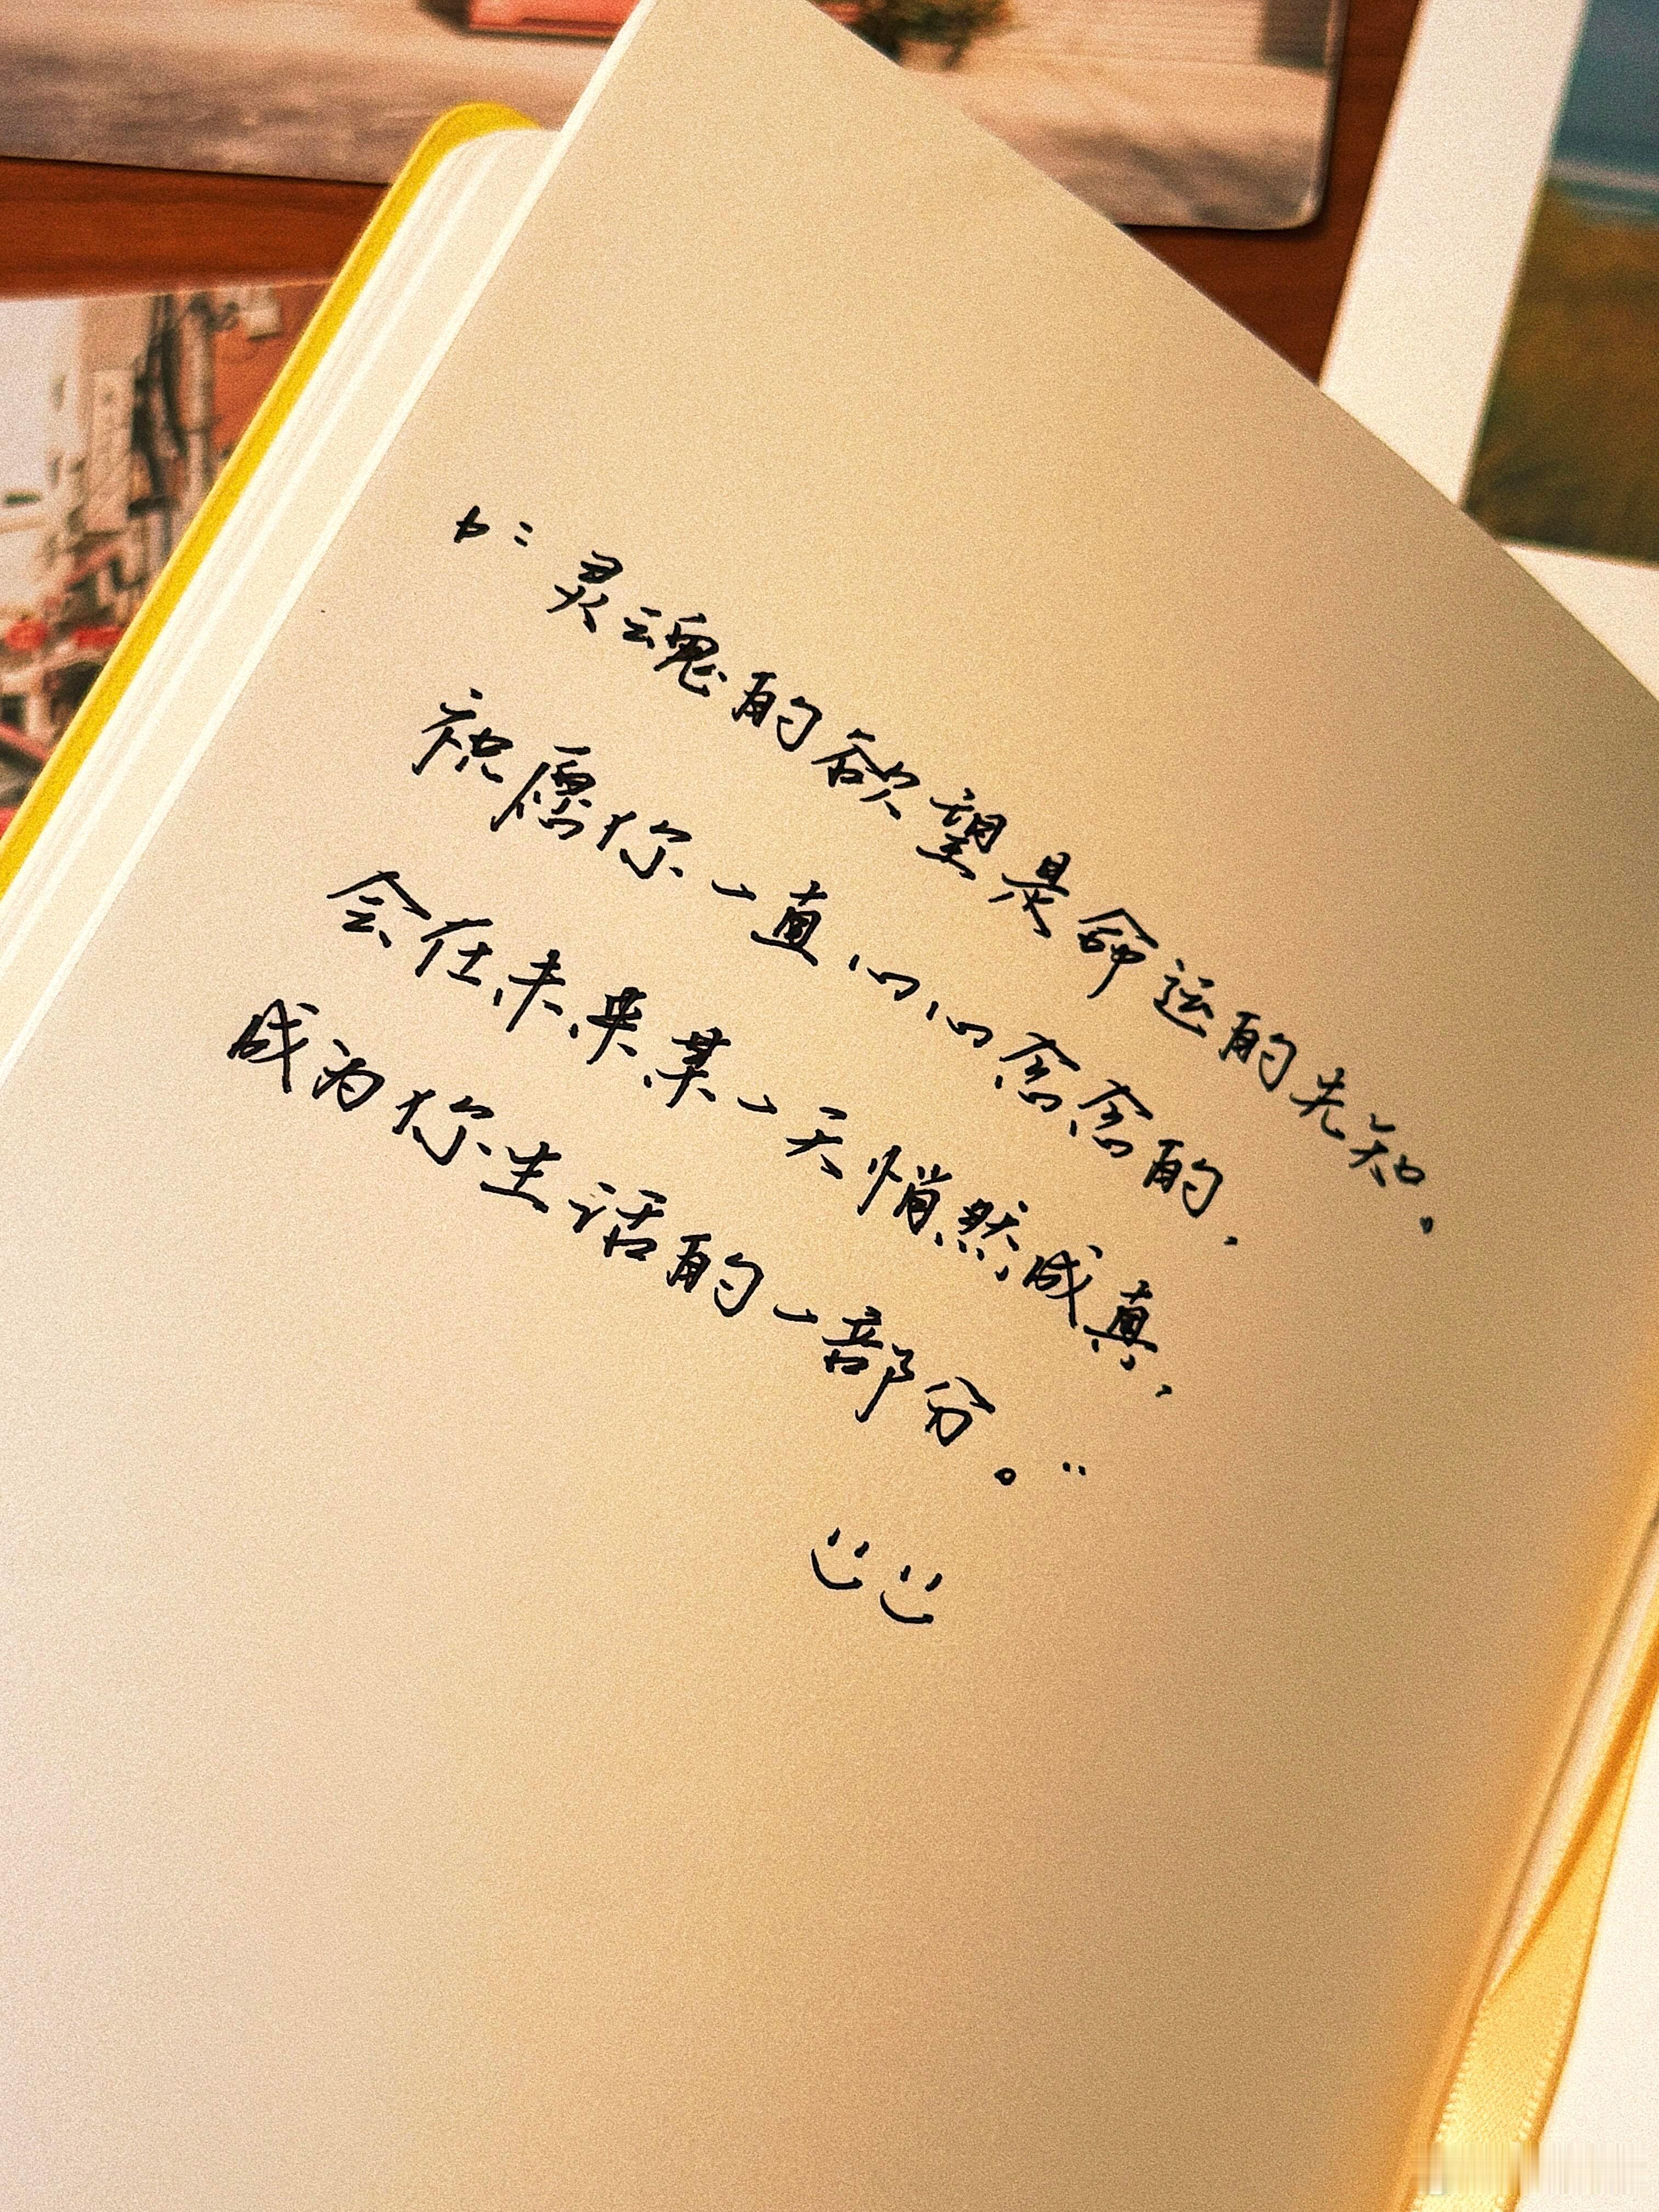 “灵魂的欲望是命运的先知，
祝愿你一直心心念念的，
会在未来某一天悄然成真，
成为你生活的一部分。”